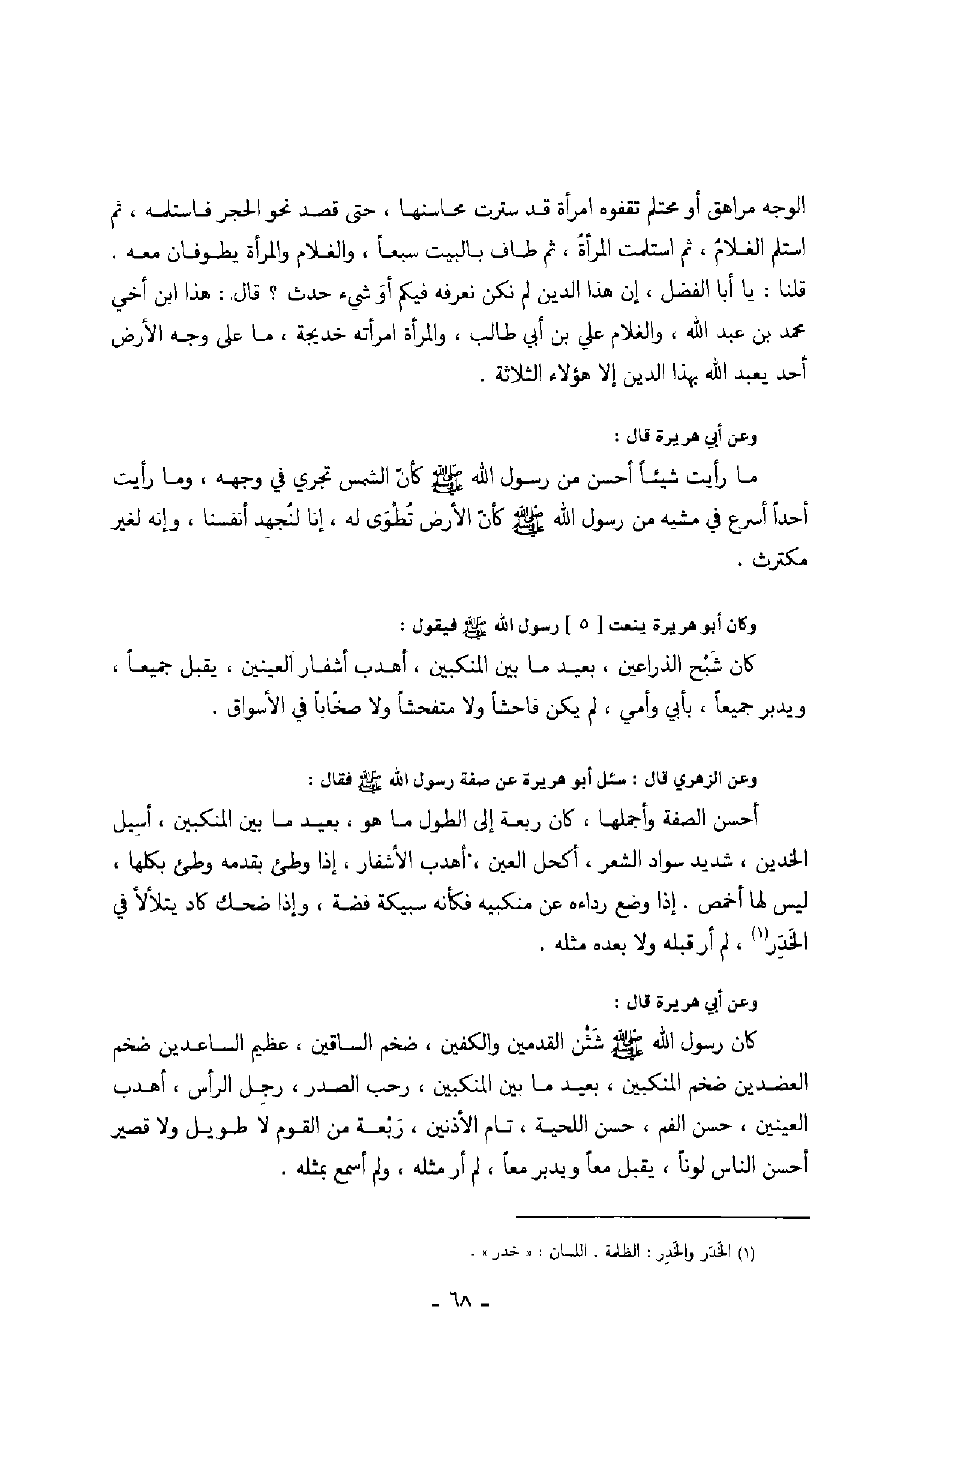 الوجه مراهق أو محتلم تقفوه امرأة قد سترت محاسنها ، حتى قصد نحو الحجر فاستلمه ، ثم
استلم الغلامُ ، ثم استلمت المرأةُ ، ثم طاف بالبيت سبعاً ، والغلام والمرأة يطوفان معه .
قلنا : يا أبا الفضل ، إن هذا الدين لم نكن نعرفه فيكم أو شيء حدث ؟ قال : هذا ابن أخي
محمد بن عبد الله ، والغلام علي بن أبي طالب ، والمرأة امرأته خديجة ، ما على وجه الأرض
أحد يعبد الله بهذا الدين إلا هؤلاء الثلاثة .
وعن أبي هريرة قال :
ما رأيت شيئاً أحسن من رسول الله ﷺ كأنّ الشمس تجري في وجهه ، وما رأيت
أحداً أسرع في مشيه من رسول الله ﷺ كأنّ الأرض تُطْوَى له ، إنا لنُجهد أنفسنا ، وإنه لغير
مكترث .
وكان أبو هريرة ينعت [ ٥ ] رسول الله ﷺ فيقول :
كان شَبْح الذراعين ، بعيد ما بين المنكبين ، أهدب أشفار العينين ، يقبل جميعاً ،
ويدبر جميعاً ، بأبي وأمي ، لم يكن فاحشاً ولا متفحشاً ولا صخّاباً في الأسواق .
وعن الزهري قال : سئل أبو هريرة عن صفة رسول الله ﷺ فقال :
أحسن الصفة وأجملها ، كان ربعة إلى الطول ما هو ، بعيد ما بين المنكبين ، أسيل
الخدين ، شديد سواد الشعر ، أكحل العين ، أهدب الأشفار ، إذا وطئ بقدمه وطئ بكلها ،
ليس لها أخمص . إذا وضع رداءه عن منكبيه فكأنه سبيكة فضة ، وإذا ضحك كاد يتلألأ في
الخَدَِر(١) ، لم أر قبله ولا بعده مثله .
وعن أبي هريرة قال :
كان رسول الله ﷺ شَثْن القدمين والكفين ، ضخم الساقين ، عظيم الساعدين ضخم
العضدين ضخم المنكبين ، بعيد ما بين المنكبين ، رحب الصدر ، رجل الرأس ، أهدب
العينين ، حسن الفم ، حسن اللحية ، تام الأذنين ، رَبْعة من القوم لا طويل ولا قصير
أحسن الناس لوناً ، يقبل معاً ويدبر معاً ، لم أر مثله ، ولم أسمع بمثله .
(١) الخَدَر والخَدِر : الظلمة . اللسان : « خدر » .
- ٦٨ -